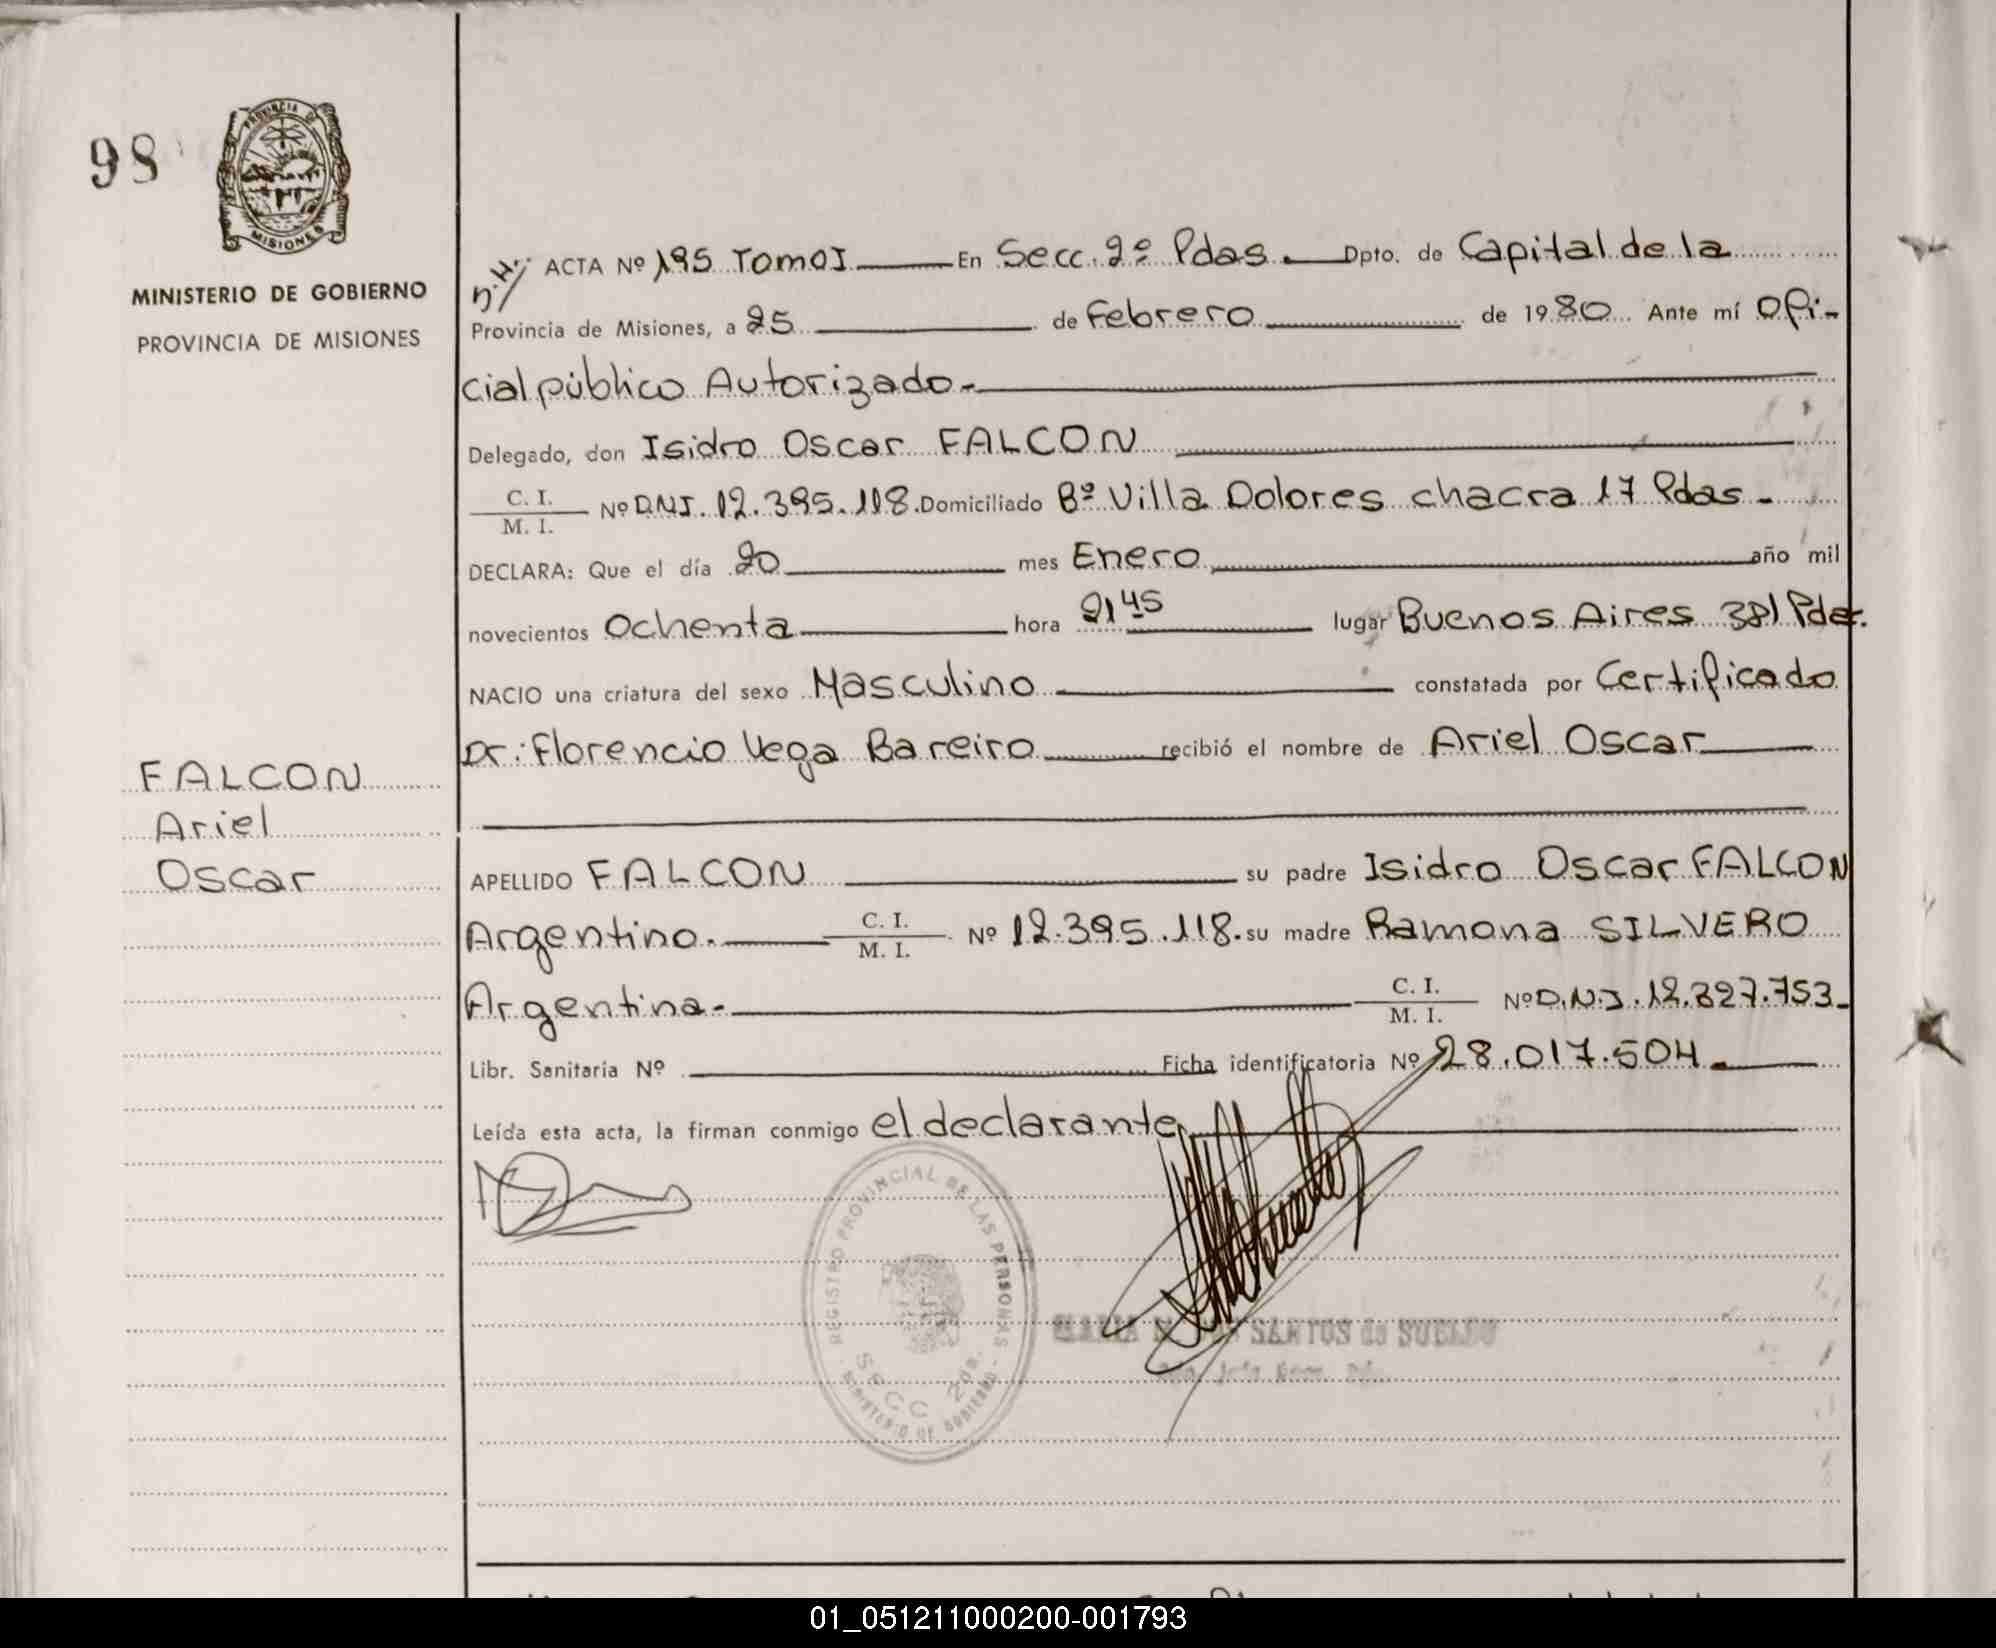 98
PROVINCIA DE
MISIONES
MINISTERIO DE GOBIERNO
PROVINCIA DE MISIONES
ACTA Nº 195 Tomo I En Secc. 2º Pdas. Dpto. de Capital de la
Provincia de Misiones, a 25 de Febrero de 1980 Ante mí Ofi-
cial público Autorizado.-
Delegado, don Isidro Oscar FALCON
C. I.
M. I. Nº D.N.I. 12.395.118. Domiciliado Bº Villa Dolores chacra 17 Pdas.-
DECLARA: Que el día 20 mes Enero año mil
novecientos Ochenta hora 21 45 lugar Buenos Aires 381 Pdas.
NACIO una criatura del sexo Masculino constatada por Certificado
Dr: Florencio Vega Bareiro recibió el nombre de Ariel Oscar
FALCON
Ariel
Oscar
APELLIDO FALCON su padre Isidro Oscar FALCON
Argentino. C. I.
M. I. Nº 12.395.118. su madre Ramona SILVERO
Argentina.- C. I.
M. I. Nº D.N.I. 12.327.753.
Libr. Sanitaria Nº Ficha identificatoria Nº 28.017.504.
Leída esta acta, la firman conmigo el declarante,
REGISTRO PROVINCIAL DE LAS PERSONAS
SECC 2da.
MINISTERIO DE GOBIERNO
SANTOS de
01_051211000200-001793